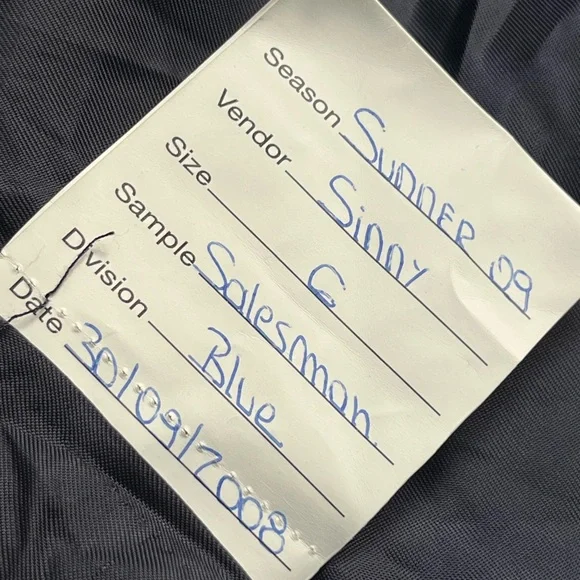 Season SUNNER 09
Vendor Sinny
Size 6
Sample Salesman
Division Blue
Date 30/09/2008